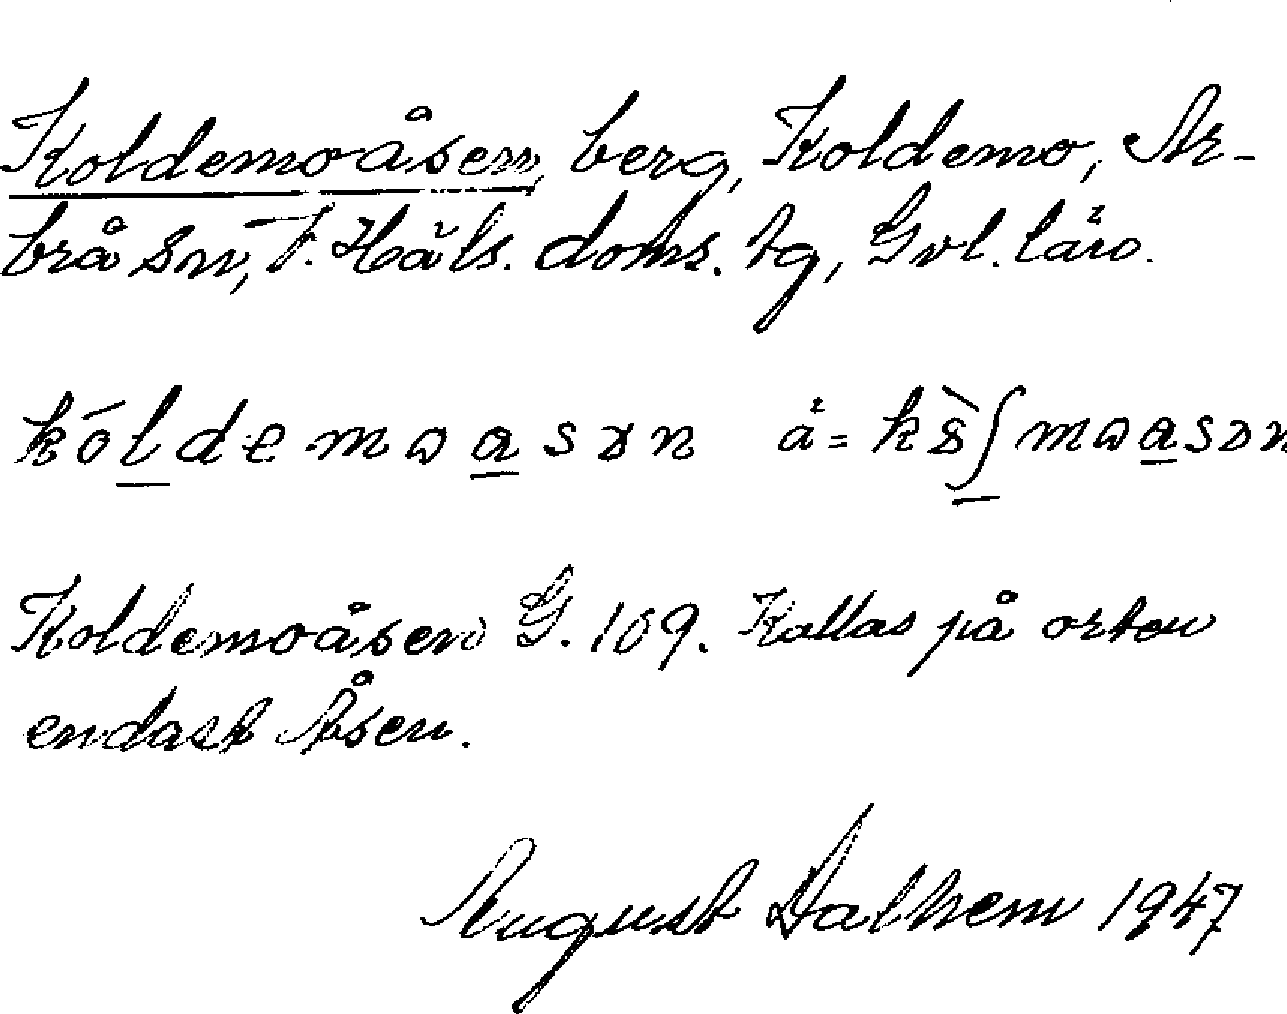 Koldemoåsen, berg, Koldemo, Ar-
brå sn, V. Häls. doms. tg, Gvl. län.
Koldemoåsen G. 109. Kallas på orten
endast Åsen.
August Dalhem 1947